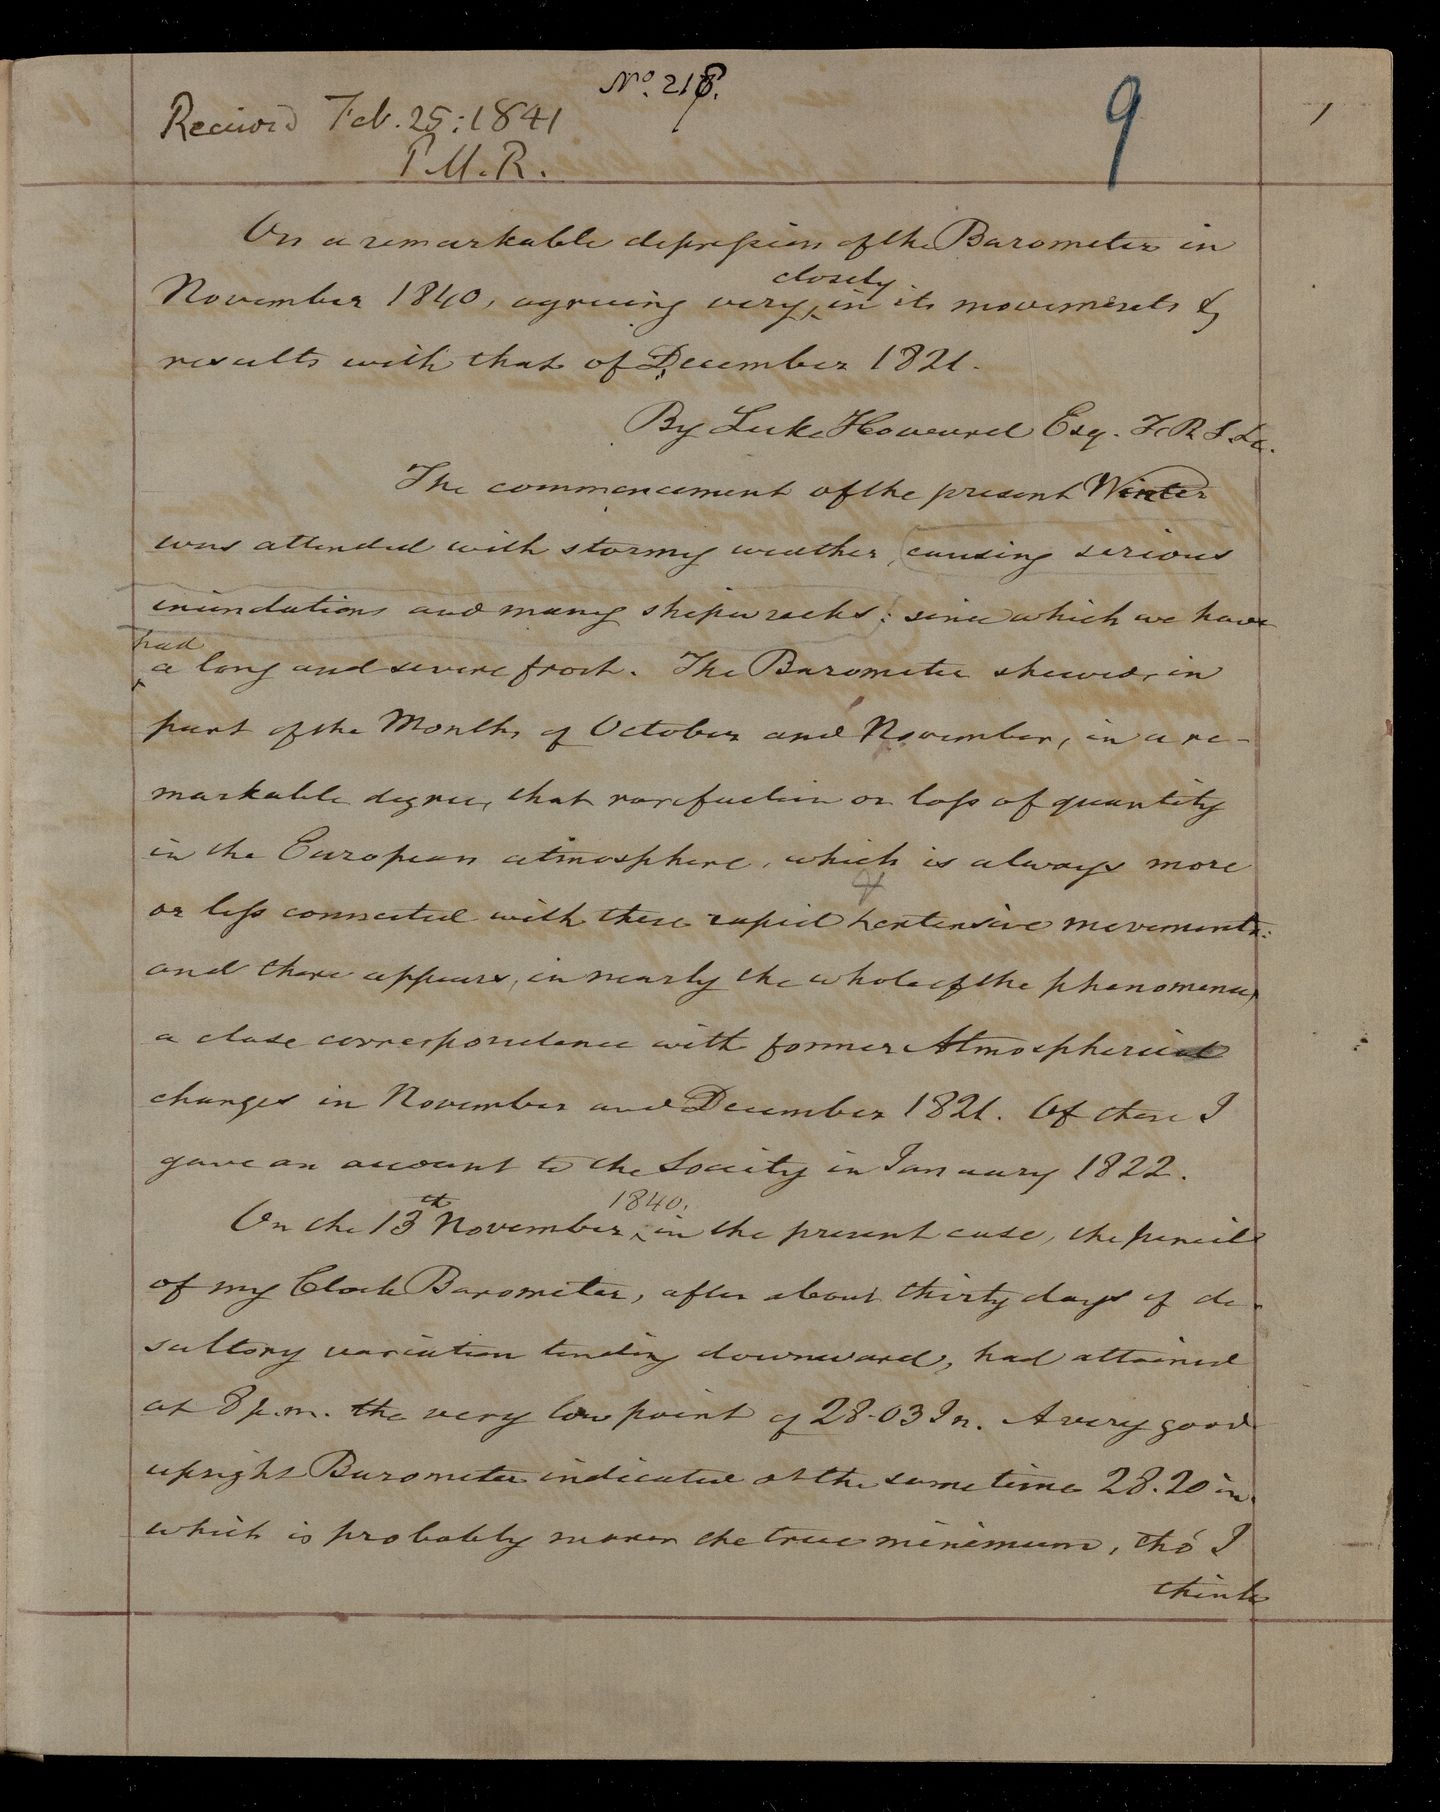 No. 218.
9
1
Received Feb. 25: 1841
P.M.R.
On a remarkable depression of the Barometer in
closely
November 1840, agreeing very in its movements &
results with that of December 1821.
By Luke Howard Esq. F.R.S. &c.
The commencement of the present Winter
was attended with stormy weather, (causing serious
inundations and many shipwrecks; since which we have
had
a long and severe frost. The Barometer shewed, in
part of the Months of October and November, in a re-
markable degree, that rarefaction or loss of quantity
in the European atmosphere, which is always more
&
or less connected with these rapid & extensive movements:
and there appears, in nearly the whole of the phenomena,
a close correspondence with former Atmospherical
changes in November and December 1821. Of these I
gave an account to the Society in January 1822.
1840.
On the 13th November, in the present case, the pencil
of my Clock Barometer, after about thirty days of de-
sultory variation tending downward, had attained
at 8 p.m. the very low point of 28.03 In. A very good
upright Barometer indicated at the same time 28.20 in.
which is probably nearer the true minimum, tho' I
think